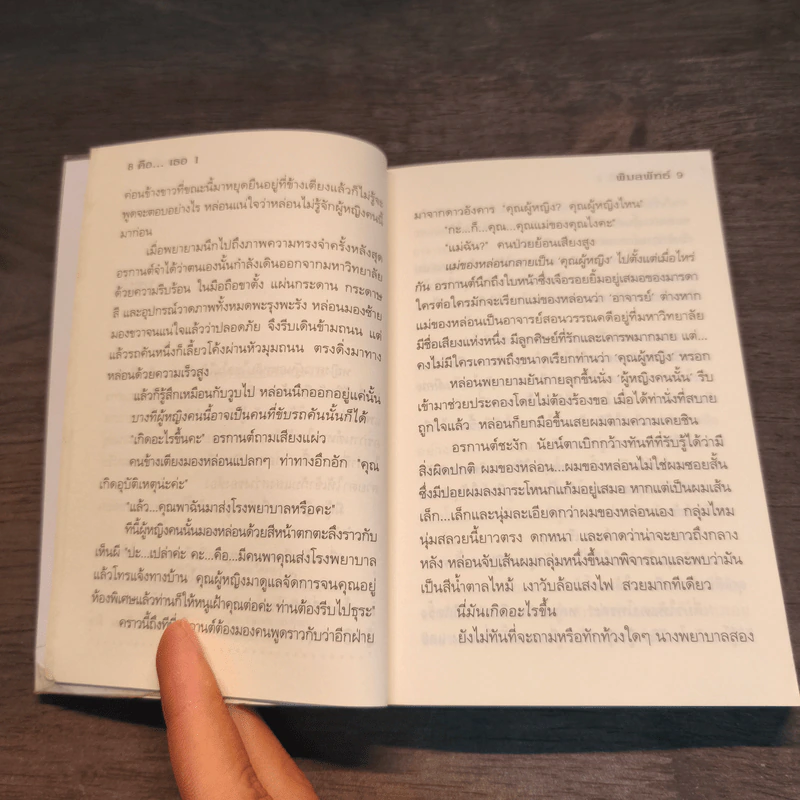 8 คือ... เธอ 1
ค่อนข้างขาวที่ขณะนี้มาหยุดยืนอยู่ที่ข้างเตียงแล้วก็ไม่รู้จะ
พูดจะตอบอย่างไร หล่อนแน่ใจว่าหล่อนไม่รู้จักผู้หญิงคนนี้
มาก่อน
เมื่อพยายามนึกไปถึงภาพความทรงจำครั้งหลังสุด
อรกานต์จำได้ว่าตนเองนั้นกำลังเดินออกจากมหาวิทยาลัย
ด้วยความรีบร้อน ในมือถือขาตั้ง แผ่นกระดาน กระดาษ
สี และอุปกรณ์วาดภาพทั้งหมดพะรุงพะรัง หล่อนมองซ้าย
มองขวาจนแน่ใจแล้วว่าปลอดภัย จึงรีบเดินข้ามถนน แต่
แล้วรถคันหนึ่งก็เลี้ยวโค้งผ่านหัวมุมถนน ตรงดิ่งมาทาง
หล่อนด้วยความเร็วสูง
แล้วก็รู้สึกเหมือนกับวูบไป หล่อนนึกออกอยู่แค่นั้น
บางทีผู้หญิงคนนี้อาจเป็นคนที่ขับรถคันนั้นก็ได้
"เกิดอะไรขึ้นคะ" อรกานต์ถามเสียงแผ่ว
คนข้างเตียงมองหล่อนแปลกๆ ท่าทางอึกอัก "คุณ
เกิดอุบัติเหตุน่ะค่ะ"
"แล้ว...คุณพาฉันมาส่งโรงพยาบาลหรือคะ"
ทีนี้ผู้หญิงคนนั้นมองหล่อนด้วยสีหน้าตกตะลึงราวกับ
เห็นผี "ปะ...เปล่าค่ะ คะ...คือ...มีคนพาคุณส่งโรงพยาบาล
แล้วโทรแจ้งทางบ้าน คุณผู้หญิงมาดูแลจัดการจนคุณอยู่
ห้องพิเศษแล้วท่านก็ให้หนูเฝ้าคุณต่อค่ะ ท่านต้องรีบไปธุระ"
คราวนี้ถึงที่ กานต์ต้องมองคนพูดราวกับว่าอีกฝ่าย
พิบลพัทธ์ 9
มาจากดาวอังคาร "คุณผู้หญิง? คุณผู้หญิงไหน"
"กะ...ก็...คุณ...คุณแม่ของคุณไงคะ"
"แม่ฉัน?" คนป่วยย้อนเสียงสูง
แม่ของหล่อนกลายเป็น 'คุณผู้หญิง' ไปตั้งแต่เมื่อไหร่
กัน อรกานต์นึกถึงใบหน้าซึ่งเจือรอยยิ้มอยู่เสมอของมารดา
ใครต่อใครมักจะเรียกแม่ของหล่อนว่า 'อาจารย์' ต่างหาก
แม่ของหล่อนเป็นอาจารย์สอนวรรณคดีอยู่ที่มหาวิทยาลัย
มีชื่อเสียงแห่งหนึ่ง มีลูกศิษย์ที่รักและเคารพมากมาย แต่...
คงไม่มีใครเคารพถึงขนาดเรียกท่านว่า 'คุณผู้หญิง' หรอก
หล่อนพยายามยันกายลุกขึ้นนั่ง 'ผู้หญิงคนนั้น' รีบ
เข้ามาช่วยประคองโดยไม่ต้องร้องขอ เมื่อได้ท่านั่งที่สบาย
ถูกใจแล้ว หล่อนก็ยกมือขึ้นเสยผมตามความเคยชิน
อรกานต์ชะงัก นัยน์ตาเบิกกว้างทันทีที่รับรู้ได้ว่ามี
สิ่งผิดปกติ ผมของหล่อน...ผมของหล่อนไม่ใช่ผมซอยสั้น
ซึ่งมีปอยผมลงมาระโหนกแก้มอยู่เสมอ หากแต่เป็นผมเส้น
เล็ก...เล็กและนุ่มละเอียดกว่าผมของหล่อนเอง กลุ่มไหม
นุ่มสลวยนี้ยาวตรง ดกหนา และคาดว่าน่าจะยาวถึงกลาง
หลัง หล่อนจับเส้นผมกลุ่มหนึ่งขึ้นมาพิจารณาและพบว่ามัน
เป็นสีน้ำตาลไหม้ เงาวับล้อแสงไฟ สวยมากทีเดียว
นี่มันเกิดอะไรขึ้น
ยังไม่ทันที่จะถามหรือทักท้วงใดๆ นางพยาบาลสอง